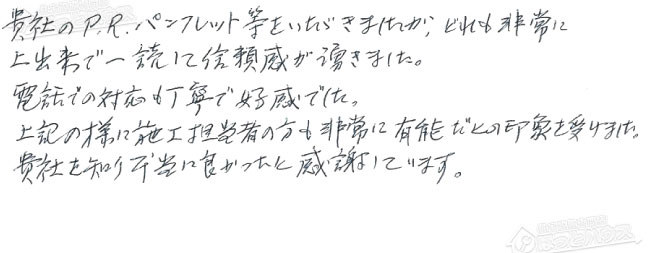 貴社のP.R.パンフレット等をいただきましたが、どれも非常に
上出来で一読して信頼感が湧きました。
電話での対応も丁寧で好感でした。
上記の様に施工担当者の方も非常に有能だとの印象を受けました。
貴社を知り本当に良かったと感謝しています。